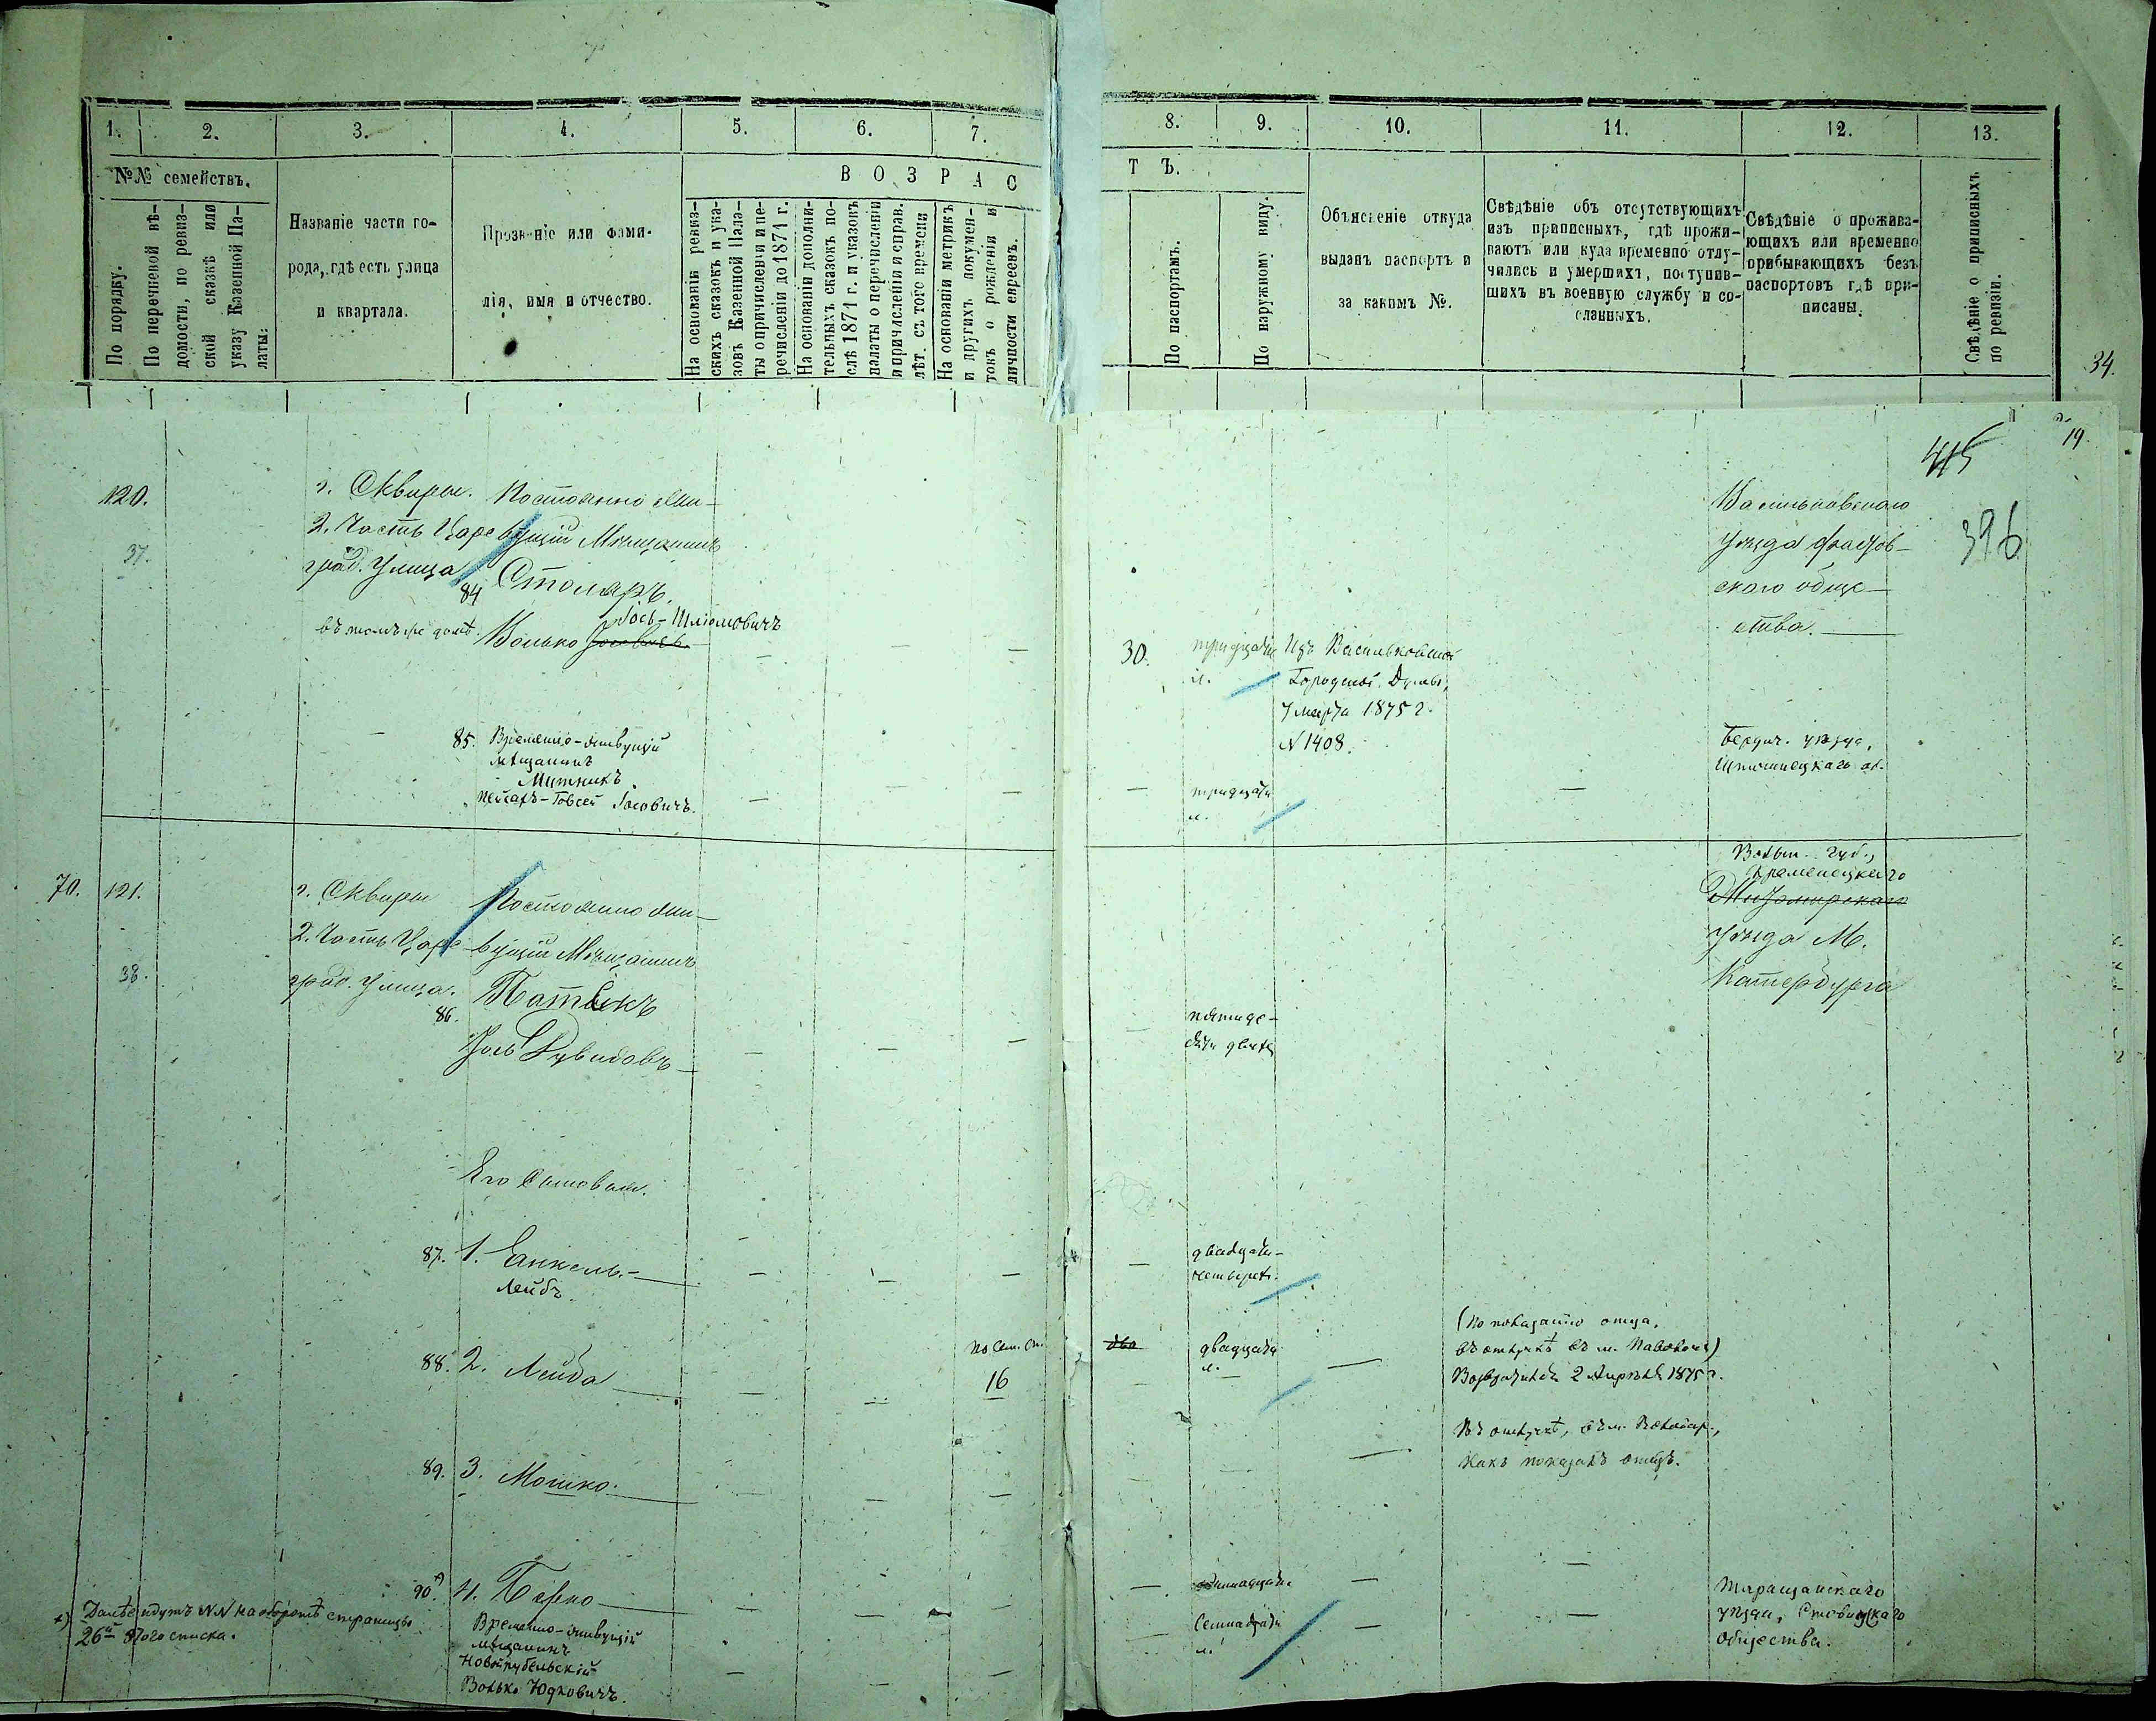 1. 2. 3. 4. 5. 6. 7.
№№ семействъ.
По порядку.
По перечневой вѣ-
домости, по ревиз-
ской сказкѣ или
указу Казенной Па-
латы:
Названіе части го-
рода, гдѣ есть улица
и квартала.
Прозваніе или фами-
лія, имя и отчество.
В О З Р А С
На основаніи ревиз-
скихъ сказокъ и ука-
зовъ Казенной Пала-
ты о причисленіи и пе-
речисленіи до 1871 г.
На основаніи дополни-
тельныхъ сказокъ по-
слѣ 1871 г. и указовъ
палаты о перечисленіи
и причисленіи и справ.
лѣт. съ того времени
На основаніи метрикъ
и другихъ докумен-
товъ о рожденіи и
личности евреевъ.
8. 9. 10. 11. 12. 13.
Т Ъ.
По паспортамъ.
По наружному виду.
Объясненіе откуда
выданъ паспортъ и
за какимъ №.
Свѣдѣніе объ отсутствующихъ
изъ приписныхъ, гдѣ прожи-
ваютъ или куда временно отлу-
чились и умершихъ, поступив-
шихъ въ военную службу и со-
сланныхъ.
Свѣдѣніе о прожива-
ющихъ или временно
прибывающихъ безъ
паспортовъ гдѣ при-
писаны.
Свѣдѣніе о приписныхъ
по ревизіи.
34.
19.
415
396
120.
37.
г. Сквиры.
2. Часть Царе
град. Улица
въ томъ же домѣ
Постоянно жи-
вущій Мѣщанинъ
84 Столяръ.
Іось-Шліомовичъ
Волько
30.
тридцати
л.
Изъ Васильковской
Городской Думы,
7 марта 1875 г.
№ 1408.
Васильковскаго
уѣзда Фастов-
скаго обще-
ства.
85. Временно-живущій
мѣщанинъ
Митникъ
Пейсахъ-Говсей Іосовичъ.
тридцати
л.
Бердич. уѣзда,
70. 121.
38.
г. Сквиры
2. Часть Царе
град. Улица.
Постоянно жи-
вущій Мѣщанинъ
86.
Іось Дувидовъ
пятиде-
сяти двухъ
Волын. губ.,
Кременецкаго
Житомирскаго
уѣзда М.
Катербурга
Его Сыновья.
87. 1. Янкель.
Лейбъ.
двадцати-
четырехъ.
88. 2. Лейба
по сем. сп.
16
два
двадцати
л.
(По показанію отца,
въ отлучкѣ въ м. Паволочь)
Возвратился 2 Апрѣля 1875 г.
89. 3. Мошко.
Въ отлучкѣ, въ м.
какъ показалъ отецъ.
90. х) 4. Берко
Временно-живущій
мѣщанинъ
Волько Юдковичъ.
семнадцати
л.
Таращанскаго
уѣзда, Ставищскаго
общества.
х) Далѣе идутъ №№ на оборотѣ страницы
26й этого списка.